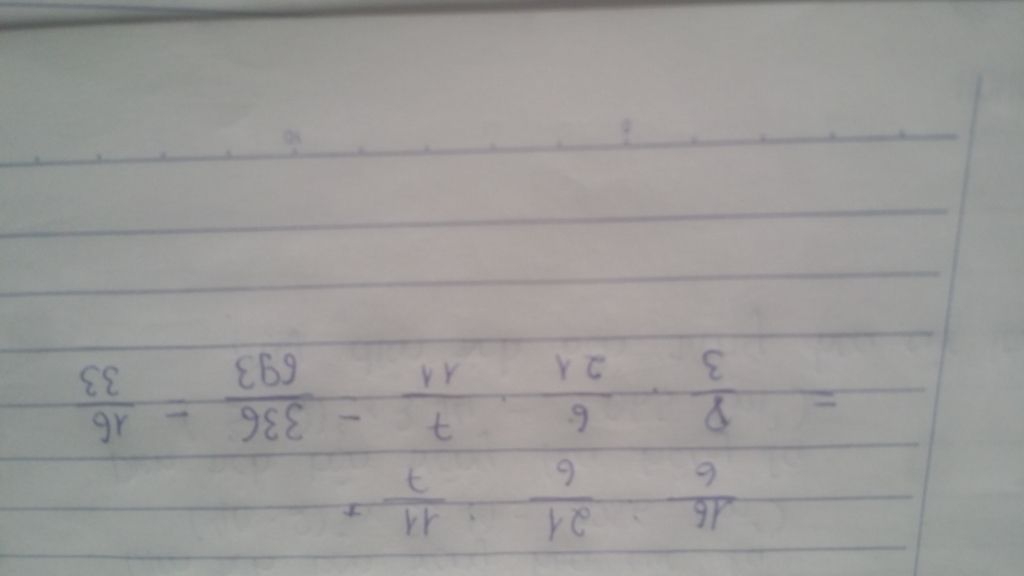 16/6 : 21/6 : 11/7 =
= 8/3 · 6/21 · 7/11 = 336/693 = 16/33
5 10